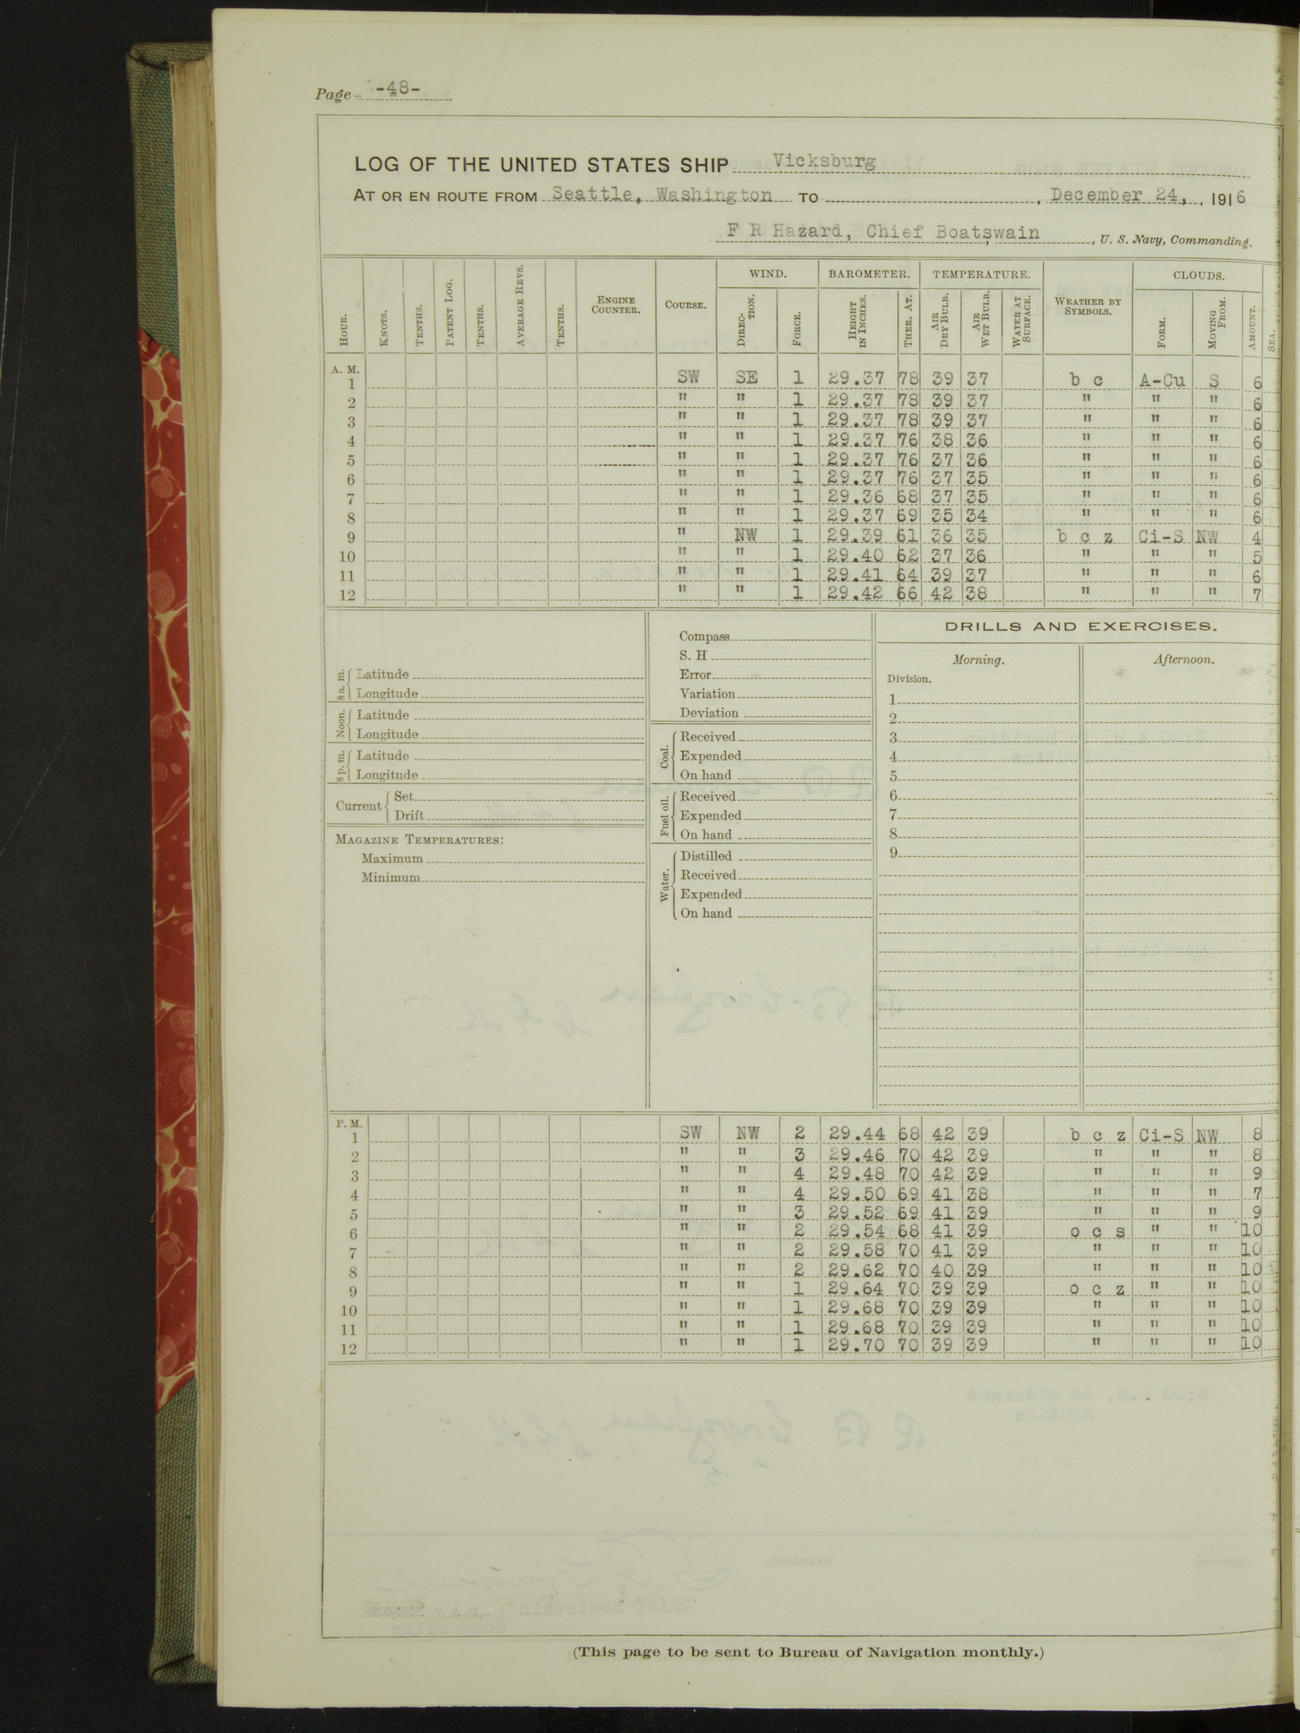 Page -48-
LOG OF THE UNITED STATES SHIP Vicksburg
AT OR EN ROUTE FROM Seattle, Washington TO , December 24, , 1916
F R Hazard, Chief Boatswain , U. S. Navy, Commanding.
WIND. BAROMETER. TEMPERATURE. CLOUDS.
HOUR. KNOTS. TENTHS. PATENT LOG. TENTHS. AVERAGE REVS. TENTHS. ENGINE COUNTER. COURSE. DIRECTION. FORCE. HEIGHT IN INCHES. THER. AT. AIR DRY BULB. AIR WET BULB. WATER AT SURFACE. WEATHER BY SYMBOLS. FORM. MOVING FROM. AMOUNT. SEA.
A. M.
1 SW SE 1 29.37 78 39 37 b c A-Cu S 6
2 " " 1 29.37 78 39 37 " " " 6
3 " " 1 29.37 78 39 37 " " " 6
4 " " 1 29.37 76 38 36 " " " 6
5 " " 1 29.37 76 37 36 " " " 6
6 " " 1 29.37 76 37 35 " " " 6
7 " " 1 29.36 68 37 35 " " " 6
8 " " 1 29.37 69 35 34 " " " 6
9 " NW 1 29.39 61 36 35 b c z Ci-S NW 4
10 " " 1 29.40 62 37 36 " " " 5
11 " " 1 29.41 64 39 37 " " " 6
12 " " 1 29.42 66 42 38 " " " 7
8 a. m. Latitude
Longitude
Noon. Latitude
Longitude
8 p. m. Latitude
Longitude
Current Set
Drift
MAGAZINE TEMPERATURES:
Maximum
Minimum
Compass
S. H
Error
Variation
Deviation
Coal. Received
Expended
On hand
Fuel oil. Received
Expended
On hand
Water. Distilled
Received
Expended
On hand
DRILLS AND EXERCISES.
Morning. Afternoon.
Division.
1
2
3
4
5
6
7
8
9
P. M.
1 SW NW 2 29.44 68 42 39 b c z Ci-S NW 8
2 " " 3 29.46 70 42 39 " " " 8
3 " " 4 29.48 70 42 39 " " " 9
4 " " 4 29.50 69 41 38 " " " 7
5 " " 3 29.52 69 41 39 " " " 9
6 " " 2 29.54 68 41 39 o c s " " 10
7 " " 2 29.58 70 41 39 " " " 10
8 " " 2 29.62 70 40 39 " " " 10
9 " " 1 29.64 70 39 39 o c z " " 10
10 " " 1 29.68 70 39 39 " " " 10
11 " " 1 29.68 70 39 39 " " " 10
12 " " 1 29.70 70 39 39 " " " 10
(This page to be sent to Bureau of Navigation monthly.)